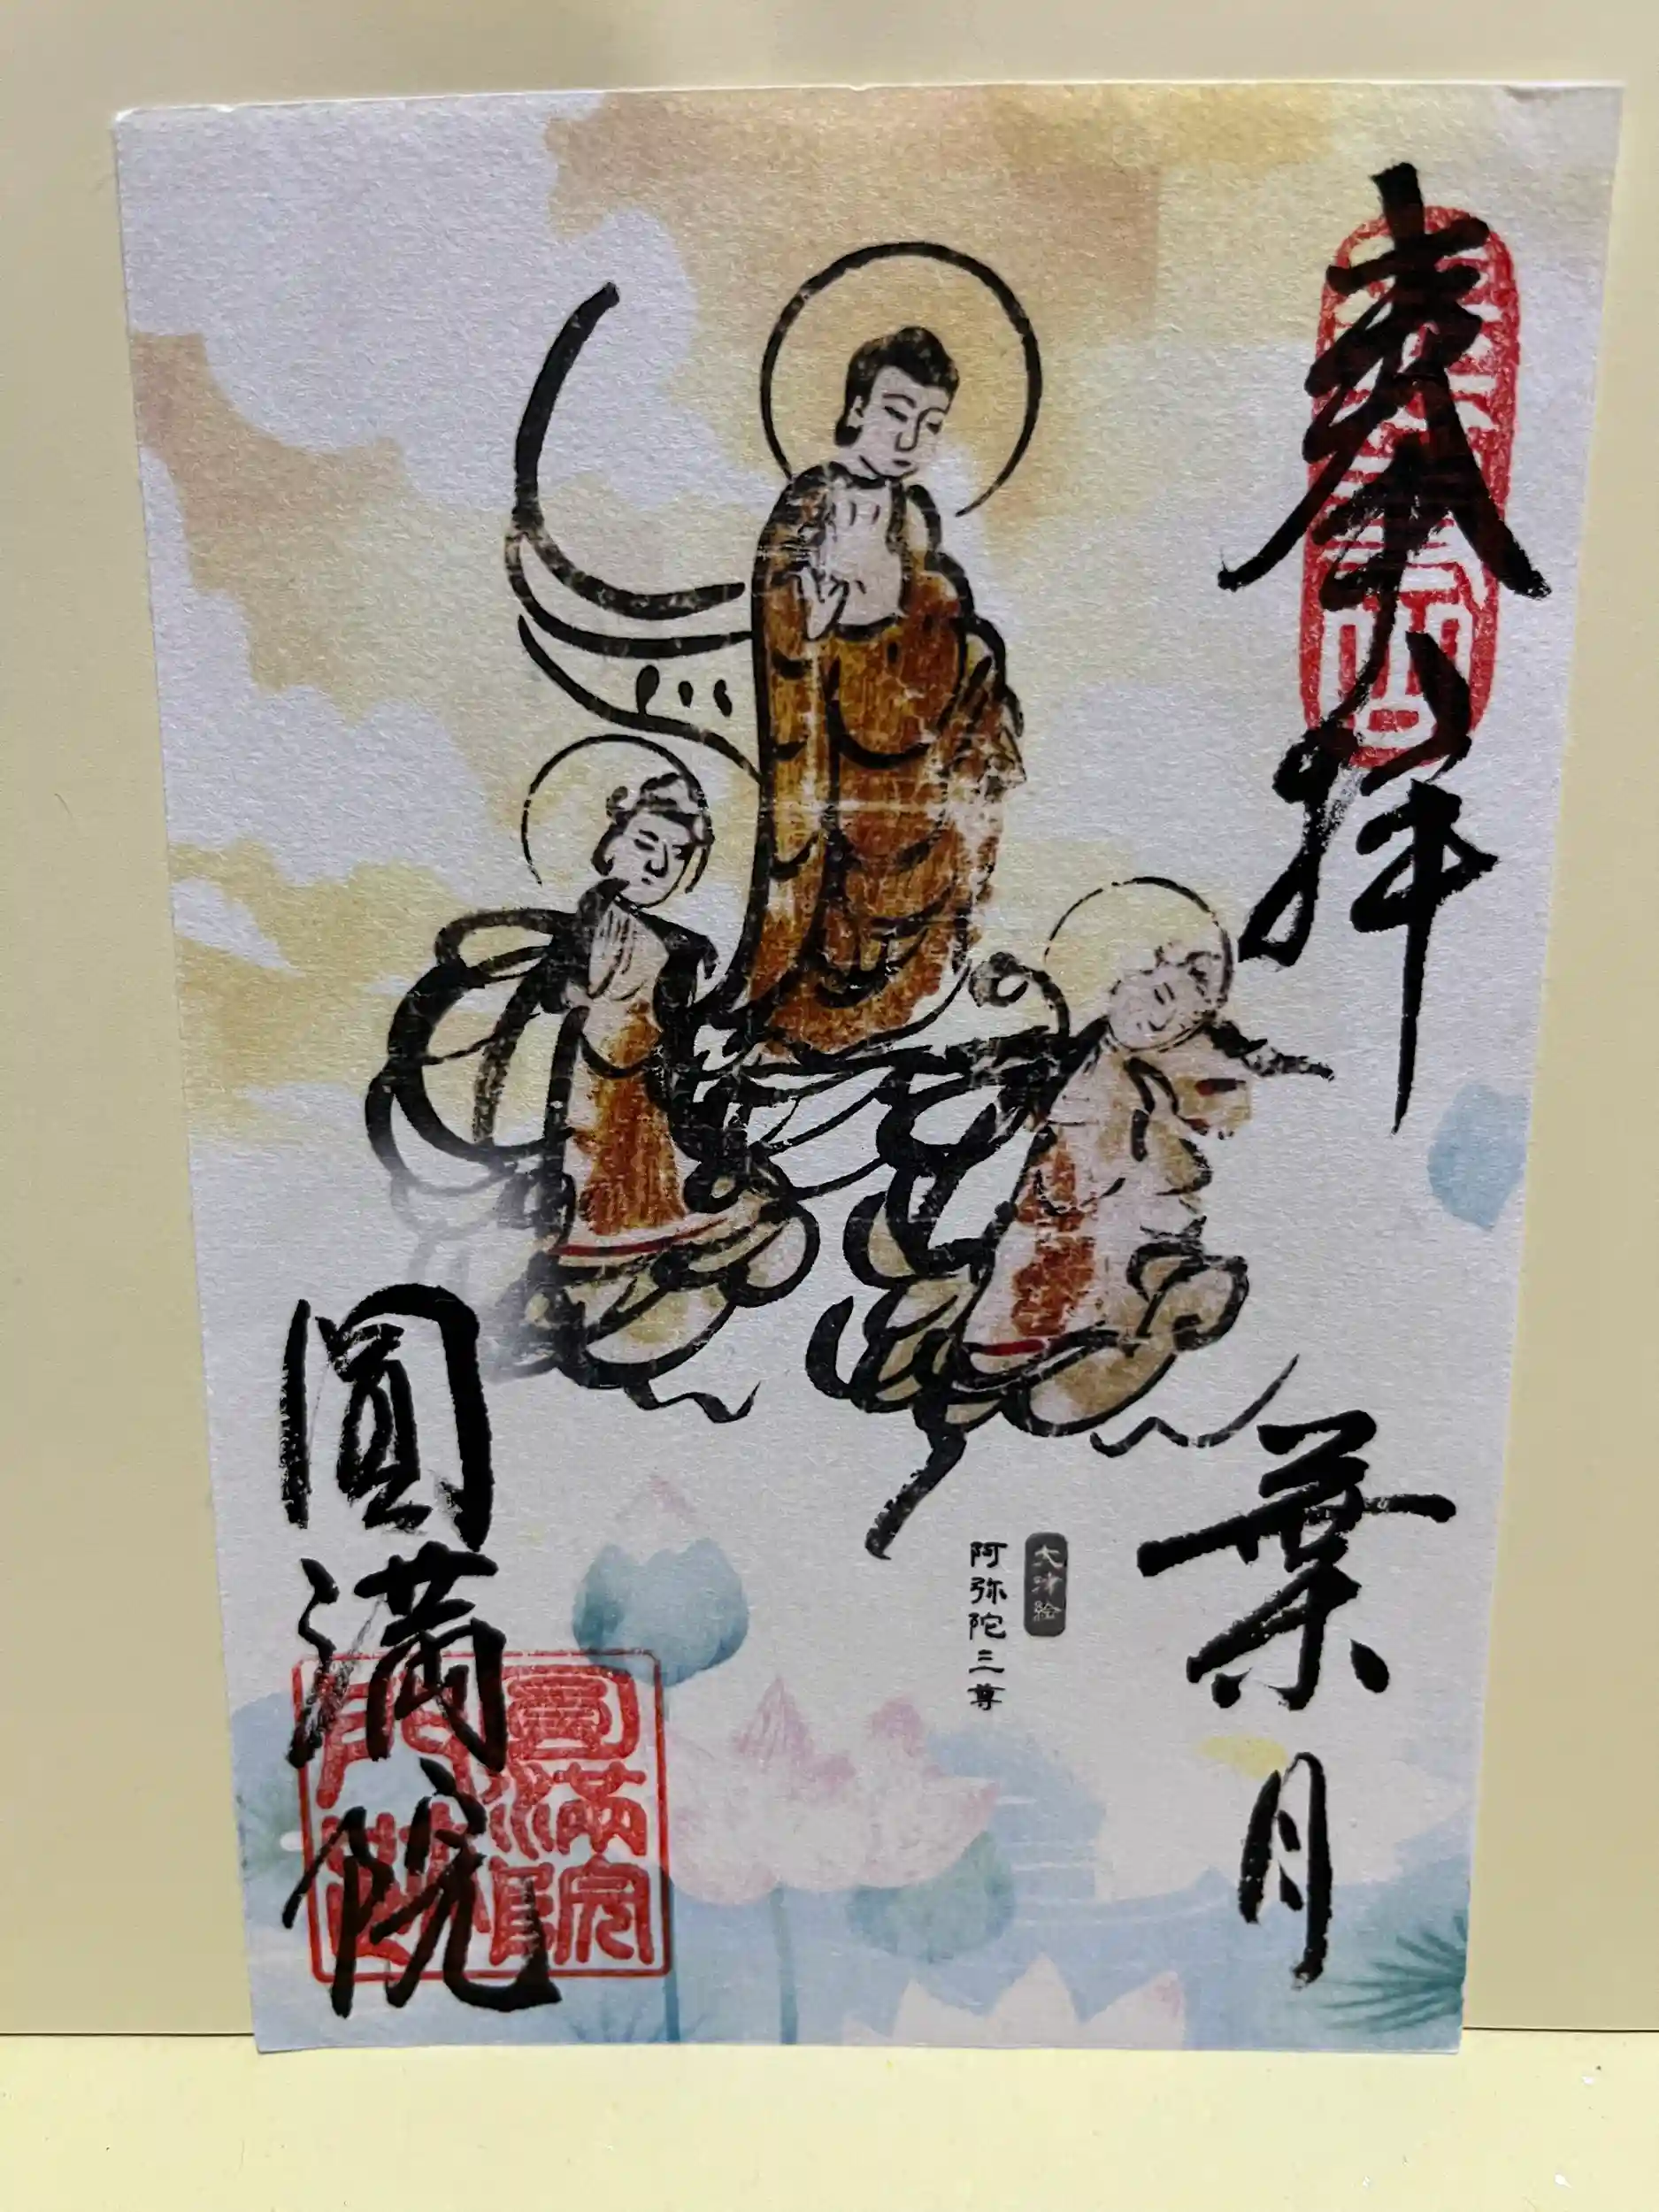 奉拝
葉月
大津絵
阿弥陀三尊
圓満院
圓満院